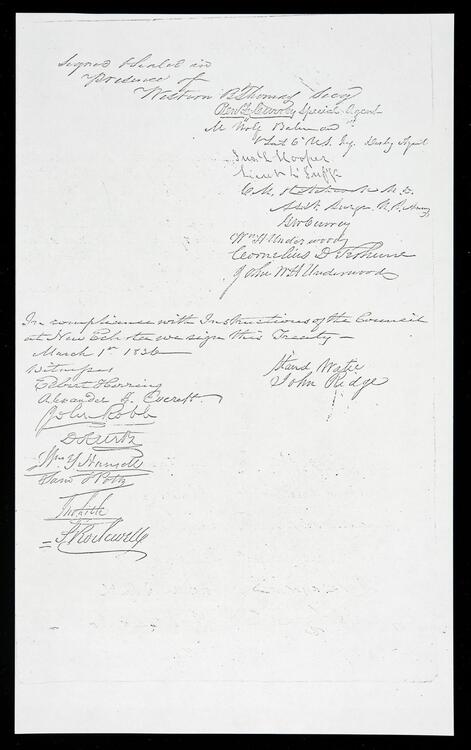 Signed & Sealed in
Presence of
Western B Thomas Secy
Ben. F. Currey Special Agent
M Wolf Bateman
1st Lt 6th U.S. Inf. Disbg Agent
Jno. L Hooper
Lieut 4th Inff.
C. M. Hitchcock M. D.
Assist Surgn U.S. Army
G W Currey
Wm H Underwood
Cornelius D Terhune
John W H Underwood
In compliance with Instructions of the Council
at New Echota we sign this Treaty —
March 1st 1836
Stand Watie
John Ridge
Witness
Elbert Herring
Alexander H. Everett
John Robb
D Kurtz
Wm Y Hansell
Saml J Potts
Jno Litle
S Rockwell